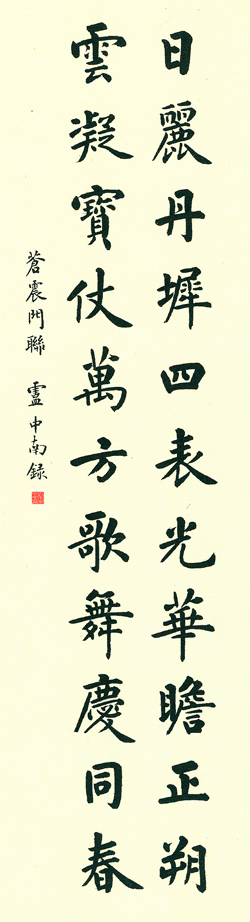 日麗丹墀四表光華瞻正朔
雲凝寶仗萬方歌舞慶同春
蒼震門聯 盧中南録